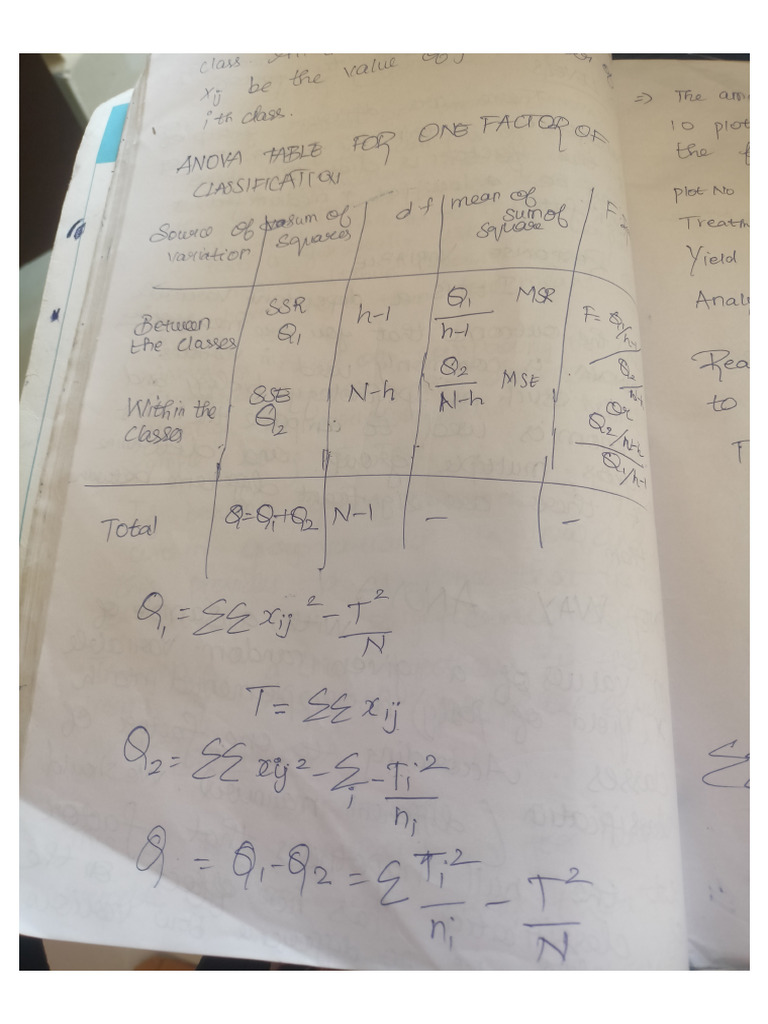 class
xij be the value of
ith class.
ANOVA TABLE FOR ONE FACTOR OF
CLASSIFICATION
Source of variation | sum of squares | df | mean of sum of square | F
Between the classes | SSR Q₁ | h-1 | Q₁/h-1 MSR | F = Q₁/h-1 / Q₂/N-1
Within the classes | SSE Q₂ | N-h | Q₂/N-h MSE | or Q₂/N-h / Q₁/h-1
Total | Q=Q₁+Q₂ | N-1 | - | -
Q₁ = ΣΣ xij² - T²/N
T = ΣΣ xij
Q₂ = ΣΣ xij² - Σi - Ti²/ni
Q = Q₁-Q₂ = Σ Ti²/ni - T²/N
⇒ The am
10 plot
the
plot No
Treatm
Yield
Anal
Rea
to
T
Σ